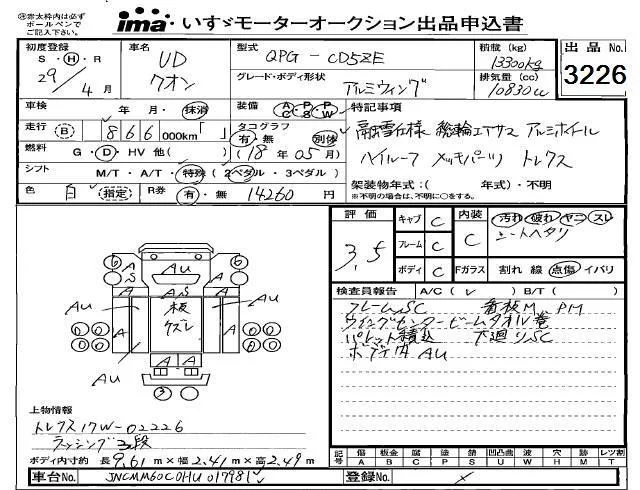 ㊟赤太枠内は必ず
ボールペンで
ご記入下さい。
ima いすゞモーターオークション出品申込書
初度登録 車名 型式 積載 (kg) 出品 No.
S・H・R UD QPG - CD5ZE 13300kg 3226
29年 4月 クオン グレード・ボディ形状 アルミウィング 排気量 (cc) 10830cc
車検 年 月・抹消 装備 A/C P/S P/W 特記事項
走行 B 866 000km「 」 タコグラフ 有・無 別体 融雪仕様 総輪エアサス アルミホイール
燃料 G・D・HV 他( ) (18年 05月) ハイルーフ メッキパーツ トレクス
シフト M/T・A/T・特殊 (2ペダル・3ペダル) 架装物年式:( 年式)・不明
色 白 (指定) R券 有・無 14260円 ※不明の場合は、不明に○をする。
評価 キャブ C 内装 汚れ 破れ ヤニ スレ
3,5 フレーム C C シートヘタリ
ボディ C Fガラス 割れ 線 点傷 イバリ
検査員報告 A/C( レ ) B/T( )
フレームSC 看板M PM
ウイングセンタービームタオル巻
パレット積込 下廻りSC
ボデ内 AU
6 A AU A 6
A S A
AU 板 ズレ AU
A A
AU A A AU
A
3
上物情報
トレクス17W-02226
ラッシング3段
ボディ内寸約 長9.61m×幅2.41m×高2.49m
記号 傷 板金 腐 塗 錆 凹凸曲 波 穴 跡 レツ割
A B C P S U W H M T
車台No. JNCMM60C0HU017981 登録No.